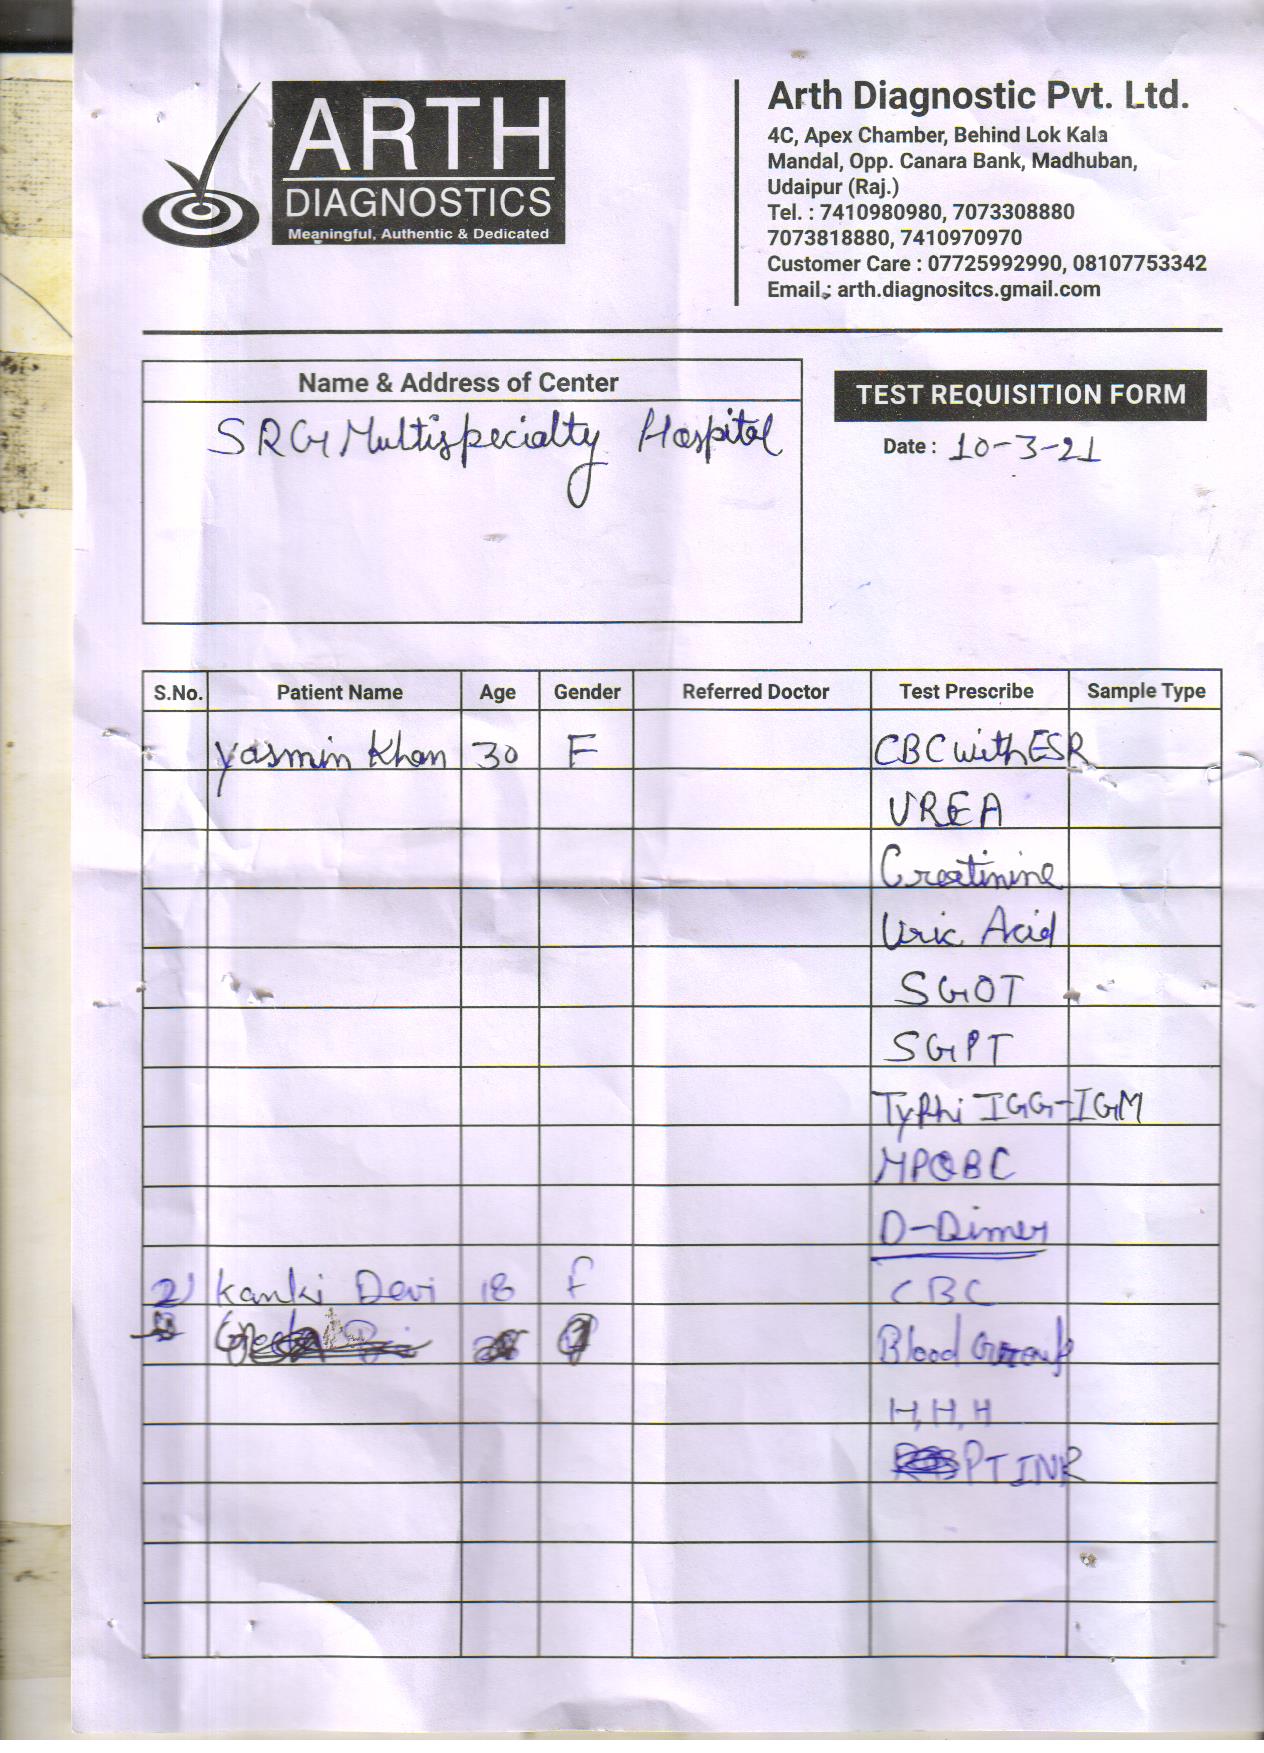 ARTH
DIAGNOSTICS
Meaningful, Authentic & Dedicated
Arth Diagnostic Pvt. Ltd.
4C, Apex Chamber, Behind Lok Kala
Mandal, Opp. Canara Bank, Madhuban,
Udaipur (Raj.)
Tel. : 7410980980, 7073308880
7073818880, 7410970970
Customer Care : 07725992990, 08107753342
Email : arth.diagnositcs.gmail.com
Name & Address of Center
SRG Multispecialty Hospital
TEST REQUISITION FORM
Date : 10-3-21
S.No. Patient Name Age Gender Referred Doctor Test Prescribe Sample Type
Yasmin Khan 30 F CBC with ESR
UREA
Creatinine
Uric Acid
SGOT
SGPT
Typhi IGG-IGM
MPQBC
D-Dimer
2) Kanki Devi 18 F CBC
Blood Group
H, H, H
PTINR